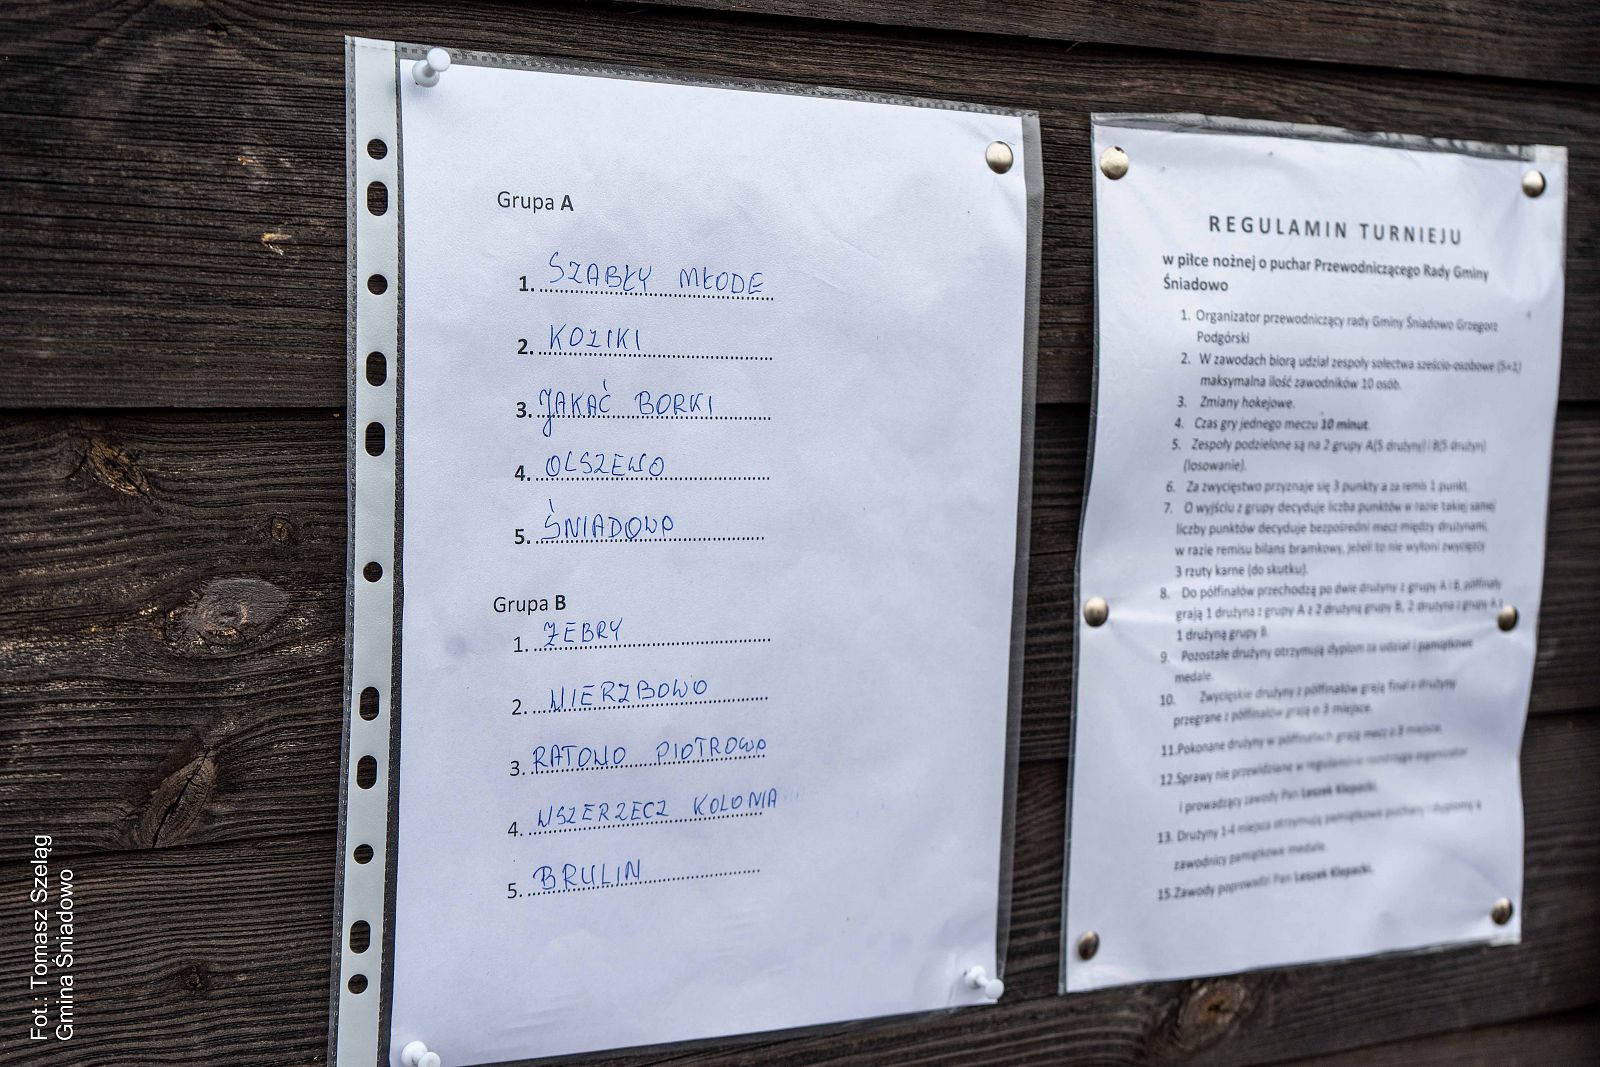 Grupa A
1. SZABŁY MŁODE
2. KOZIKI
3. JAKAĆ BORKI
4. OLSZEWO
5. ŚNIADOWO
Grupa B
1. ŻEBRY
2. WIERZBOWO
3. RATOWO PIOTROWO
4. WSZERZECZ KOLONIA
5. BRULIN
REGULAMIN TURNIEJU
w piłce nożnej o puchar Przewodniczącego Rady Gminy
Śniadowo
1. Organizator przewodniczący rady Gminy Śniadowo Grzegorz
Podgórski
2. W zawodach biorą udział zespoły sołectwa sześcio-osobowe (5+1)
maksymalna ilość zawodników 10 osób.
3. Zmiany hokejowe.
4. Czas gry jednego meczu 10 minut.
5. Zespoły podzielone są na 2 grupy A(5 drużyny) i B(5 drużyn)
(losowanie).
6. Za zwycięstwo przyznaje się 3 punkty a za remis 1 punkt.
7. O wyjściu z grupy decyduje liczba punktów w razie takiej samej
liczby punktów decyduje bezpośredni mecz między drużynami,
w razie remisu bilans bramkowy, jeżeli to nie wyłoni zwycięzcy
3 rzuty karne (do skutku).
8. Do półfinałów przechodzą po dwie drużyny z grupy A i B, półfinały
grają 1 drużyna z grupy A z 2 drużyną grupy B, 2 drużyna z grupy A z
1 drużyną grupy B.
9. Pozostałe drużyny otrzymują dyplom za udział i pamiątkowe
medale.
10. Zwycięskie drużyny z półfinałów grają finał a drużyny
przegrane z półfinałów grają o 3 miejsce.
11.Pokonane drużyny w półfinałach grają mecz o 3 miejsce.
12.Sprawy nie przewidziane w regulaminie rozstrzyga organizator
i prowadzący zawody Pan Leszek Kłepacki.
13. Drużyny 1-4 miejsca otrzymują pamiątkowe puchary i dyplomy a
zawodnicy pamiątkowe medale.
15.Zawody poprowadzi Pan Leszek Kłepacki.
Fot.: Tomasz Szeląg
Gmina Śniadowo